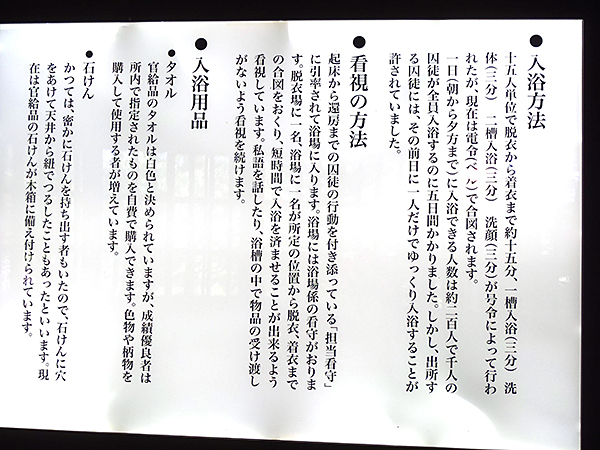 ●入浴方法
十五人単位で脱衣から着衣まで約十五分、一槽入浴(三分) 洗
体(三分) 二槽入浴(三分) 洗顔(三分)が号令によって行わ
れたが、現在は電令(ベル)で合図されます。
一日(朝から夕方まで)に入浴できる人数は約二百人で千人の
囚徒が全員入浴するのに五日間かかりました。しかし、出所す
る囚徒には、その前日に一人だけでゆっくり入浴することが
許されていました。
●看視の方法
起床から還房までの囚徒の行動を付き添っている「担当看守」
に引率されて浴場に入ります。浴場には浴場係の看守がおりま
す。脱衣場に一名、浴場に一名が所定の位置から脱衣、着衣まで
の合図をおくり、短時間で入浴を済ませることが出来るよう
看視しています。私語を話したり、浴槽の中で物品の受け渡し
がないよう看視を続けます。
●入浴用品
●タオル
官給品のタオルは白色と決められていますが、成績優良者は
所内で指定されたものを自費で購入できます。色物や柄物を
購入して使用する者が増えています。
●石けん
かつては、密かに石けんを持ち出す者もいたので、石けんに穴
をあけて天井から紐でつるしたこともあったといいます。現
在は官給品の石けんが木箱に備え付けられています。